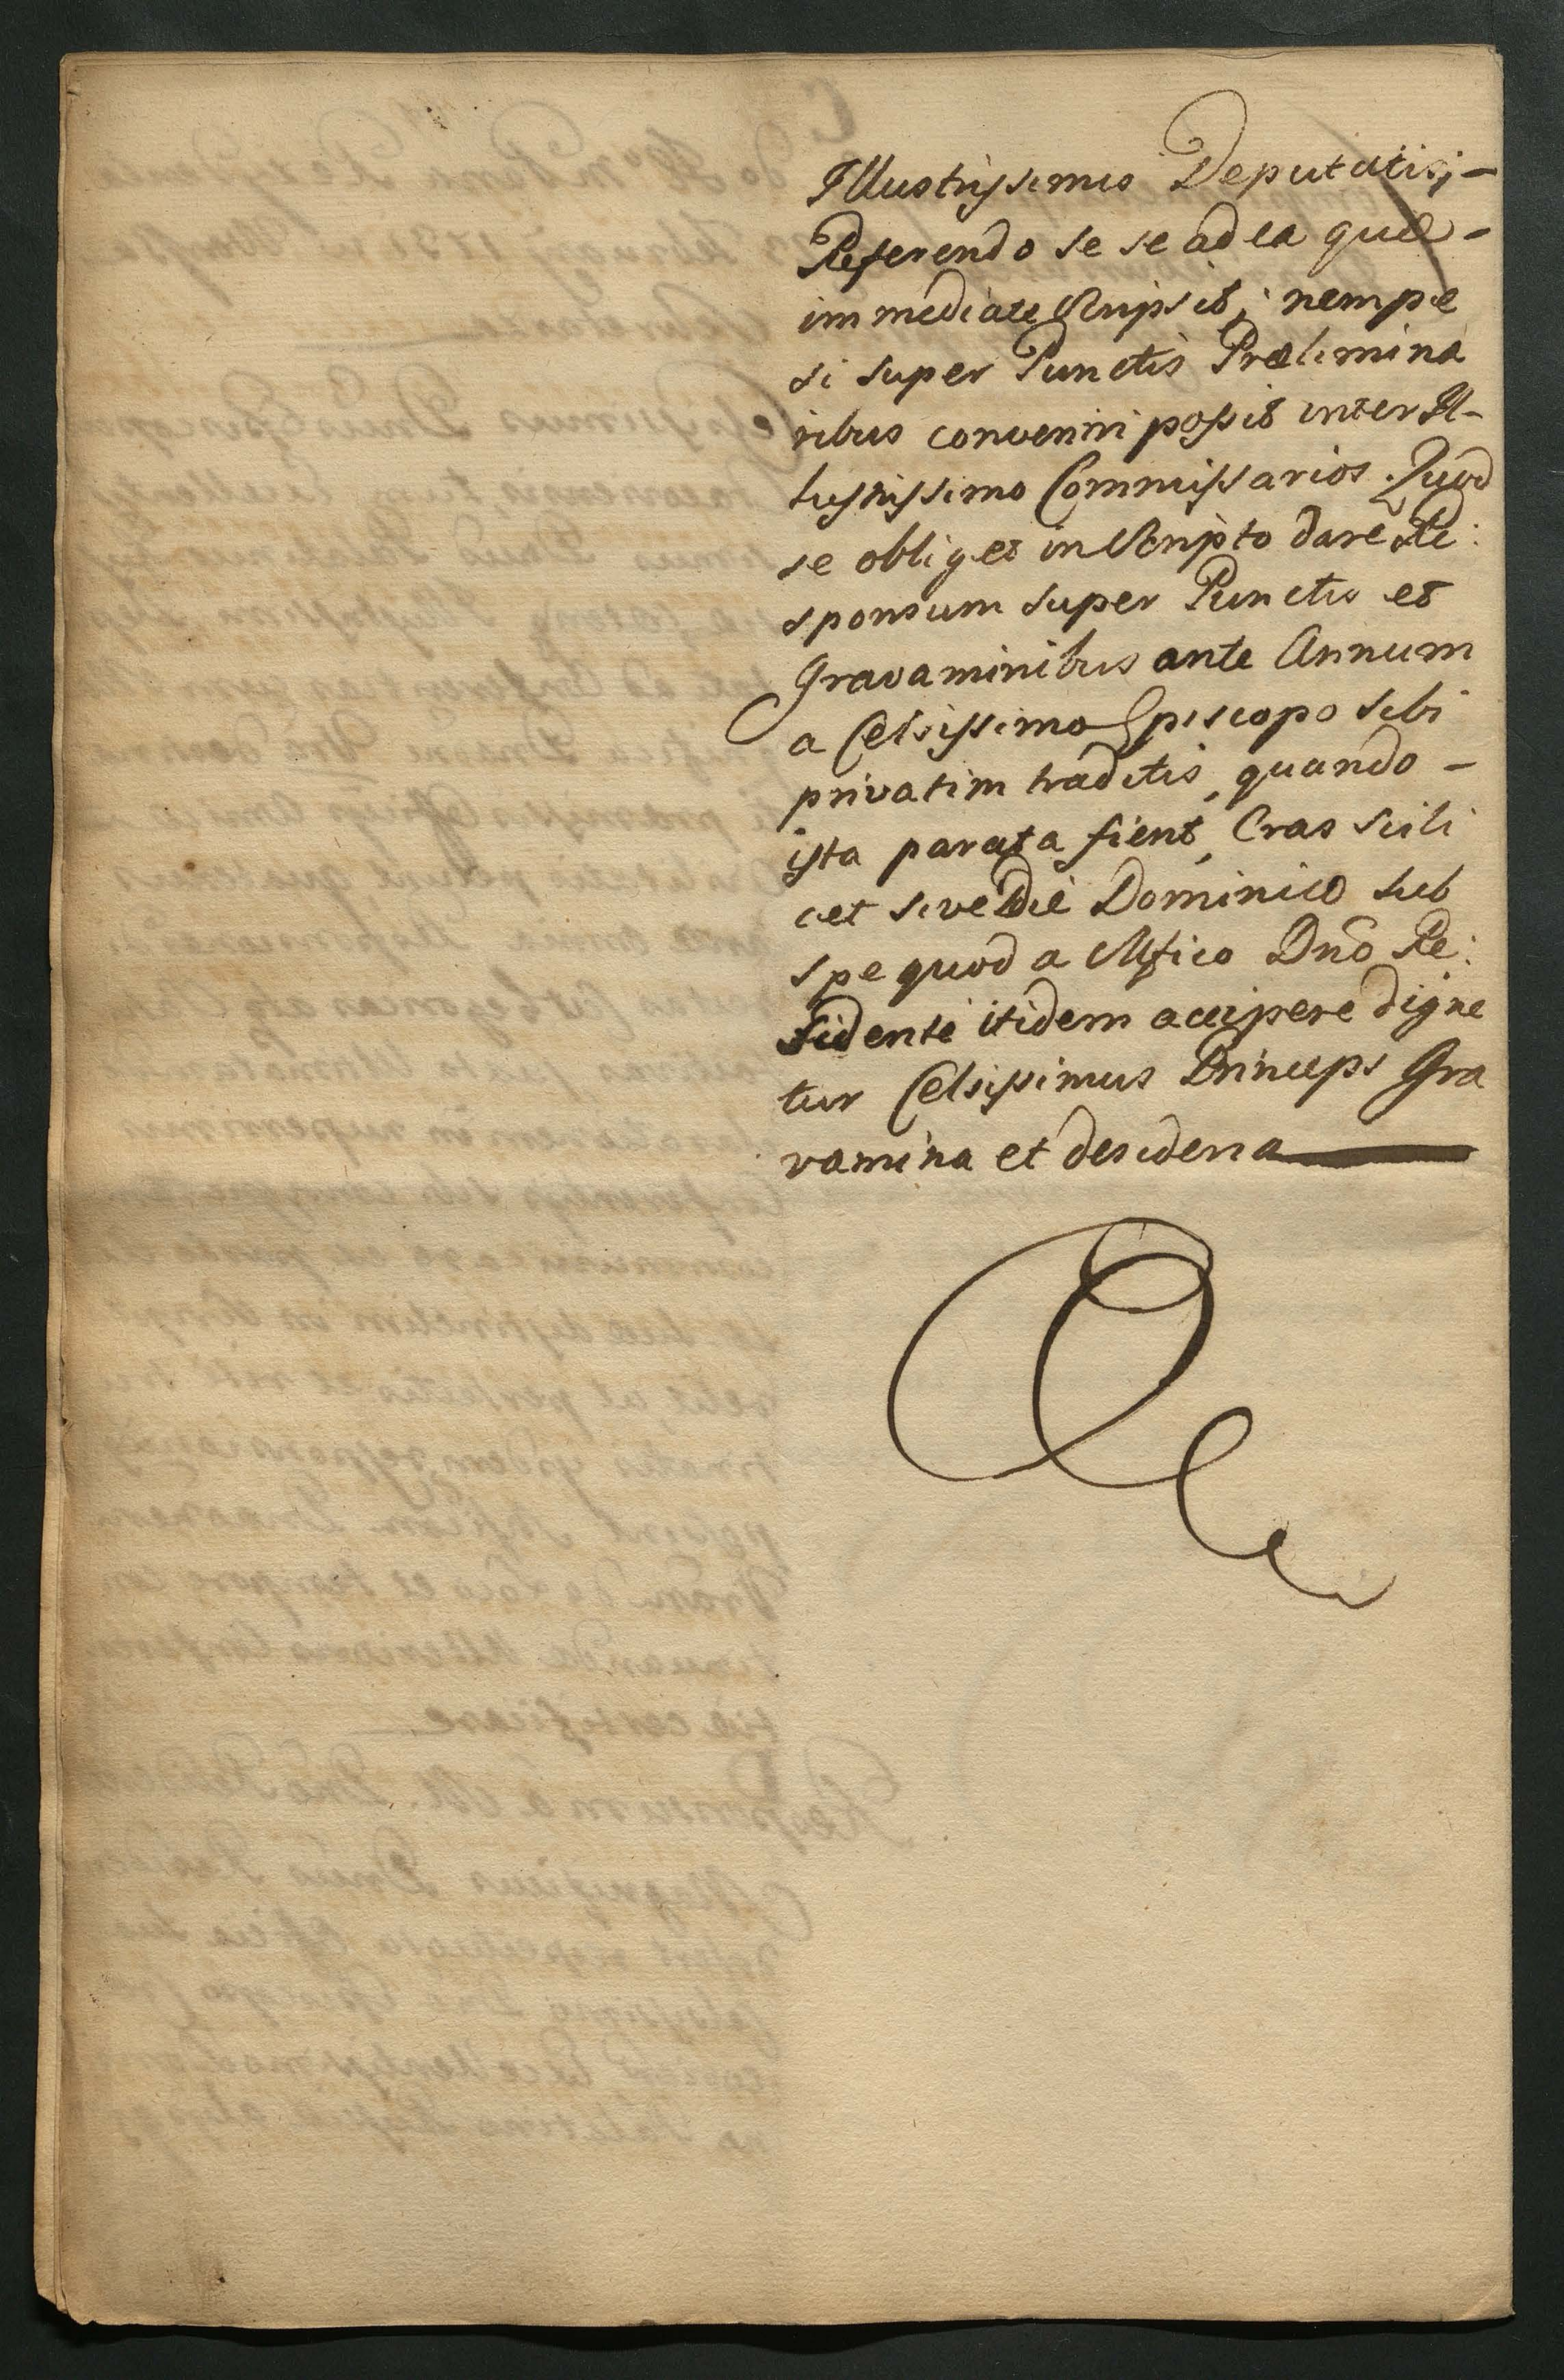 Illustrissimis Deputatis; -
Referendo se se ad ea quæ -
immediate scripsit; nempe
si super Punctis Prælimina
ribus conveniri possit inter Il-
lustrissimo Commissarios. Quod
se obliget in scripto dare Re:
sponsum super Punctis et
Gravaminibus ante Annum
a Celsissimo Episcopo sibi
privatim traditis, quando -
ista parata fient, Cras scili
cet sive Die Dominico sub
spe quod a Mfico Dnō Re:
sidente itidem accipere digne
tur Celsissimus Princeps Gra
vamina et desideria